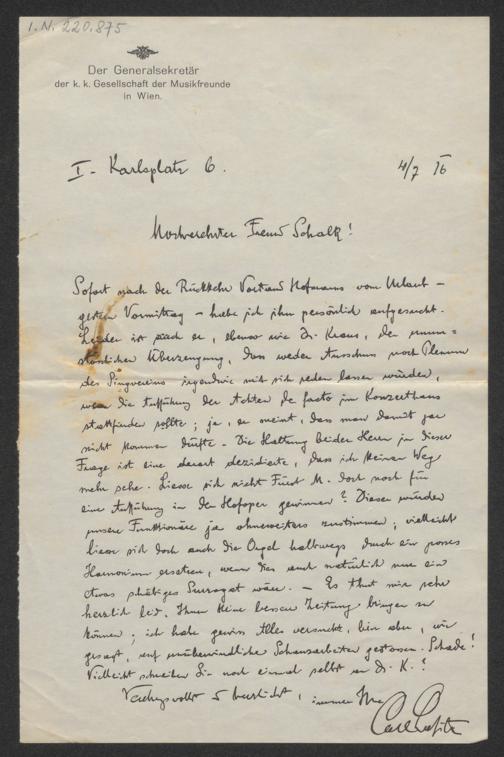 I. N. 220.875
Der Generalsekretär
der k. k. Gesellschaft der Musikfreunde
in Wien.
I - Karlsplatz 6.
4/7 16
Hochverehrter Freund Schalk!
Sofort nach der Rückkehr Vorstand Hofmanns vom Urlaub -
gestern Vormittag - habe ich ihn persönlich aufgesucht.
Leider ist auch er, ebenso wie Dr. Kraus, der unum=
stösslichen Überzeugung, dass weder Ausschuss noch Plenum
des Singvereins irgendwie mit sich reden lassen würden,
wenn die Aufführung der Achten de facto im Konzerthaus
stattfinden sollte; ja, er meint, dass man damit gar
nicht kommen dürfte. - Die Haltung beider Herrn in dieser
Frage ist eine derart dezidierte, dass ich keinen Weg
mehr sehe. Liesse sich nicht Fürst M. doch noch für
eine Aufführung in der Hofoper gewinnen? Dieser würden
unsere Funktionäre ja ohneweiters zustimmen; vielleicht
liesse sich doch auch die Orgel halbwegs durch ein grosses
Harmonium ersetzen, wenn dies auch natürlich nur ein
etwas schäbiges Surrogat wäre. - Es thut mir sehr
herzlich leid, Ihnen keine bessere Zeitung bringen zu
können; ich habe gewiss Alles versucht, bin aber, wie
gesagt, auf unüberwindliche Schanzarbeiten gestossen. Schade!
Vielleicht schreiben Sie noch einmal selbst an Dr. K.?
Verehrungsvollst & herzlichst, immer Ihr
Carl Lafite